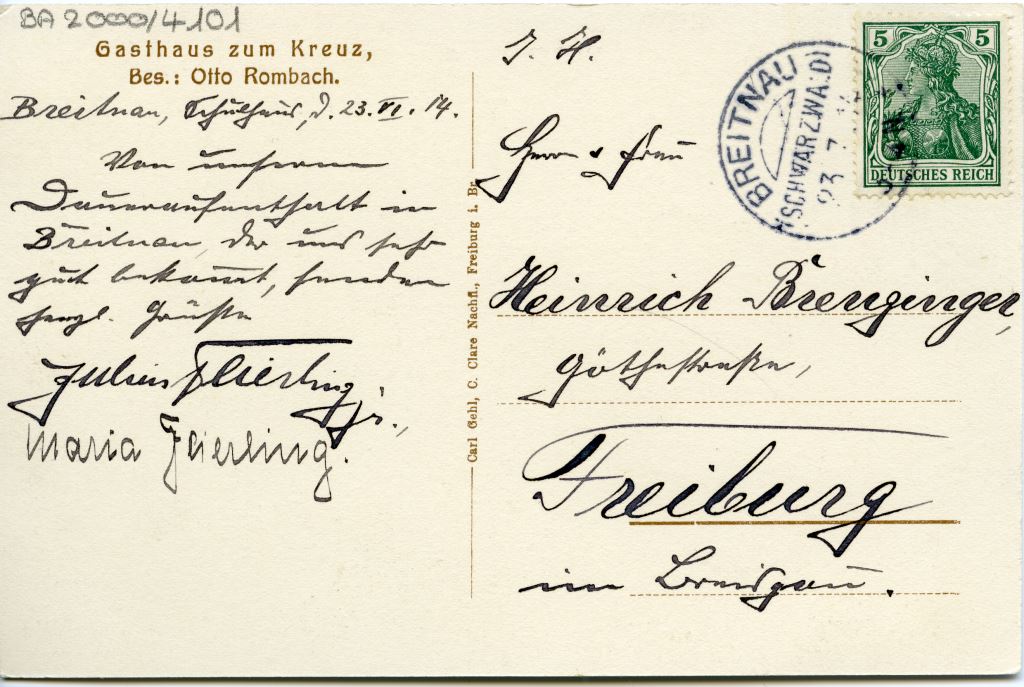 BA 2000/4101
Gasthaus zum Kreuz,
Bes.: Otto Rombach.
Breitnau, Schulhaus, d. 23. VI. 14.
Von unserem
Daueraufenthalt in
Breitnau, der uns sehr
gut bekommt, senden
herzl. Grüße
Julius Flierling jr.,
Maria Flierling.
Carl Gebl, C. Clare Nachfl., Freiburg i. Br.
Herrn & Frau
Heinrich Brenzinger,
Göthestraße,
Freiburg
im Breisgau.
BREITNAU
(SCHWARZWALD)
23 7
5 5
DEUTSCHES REICH